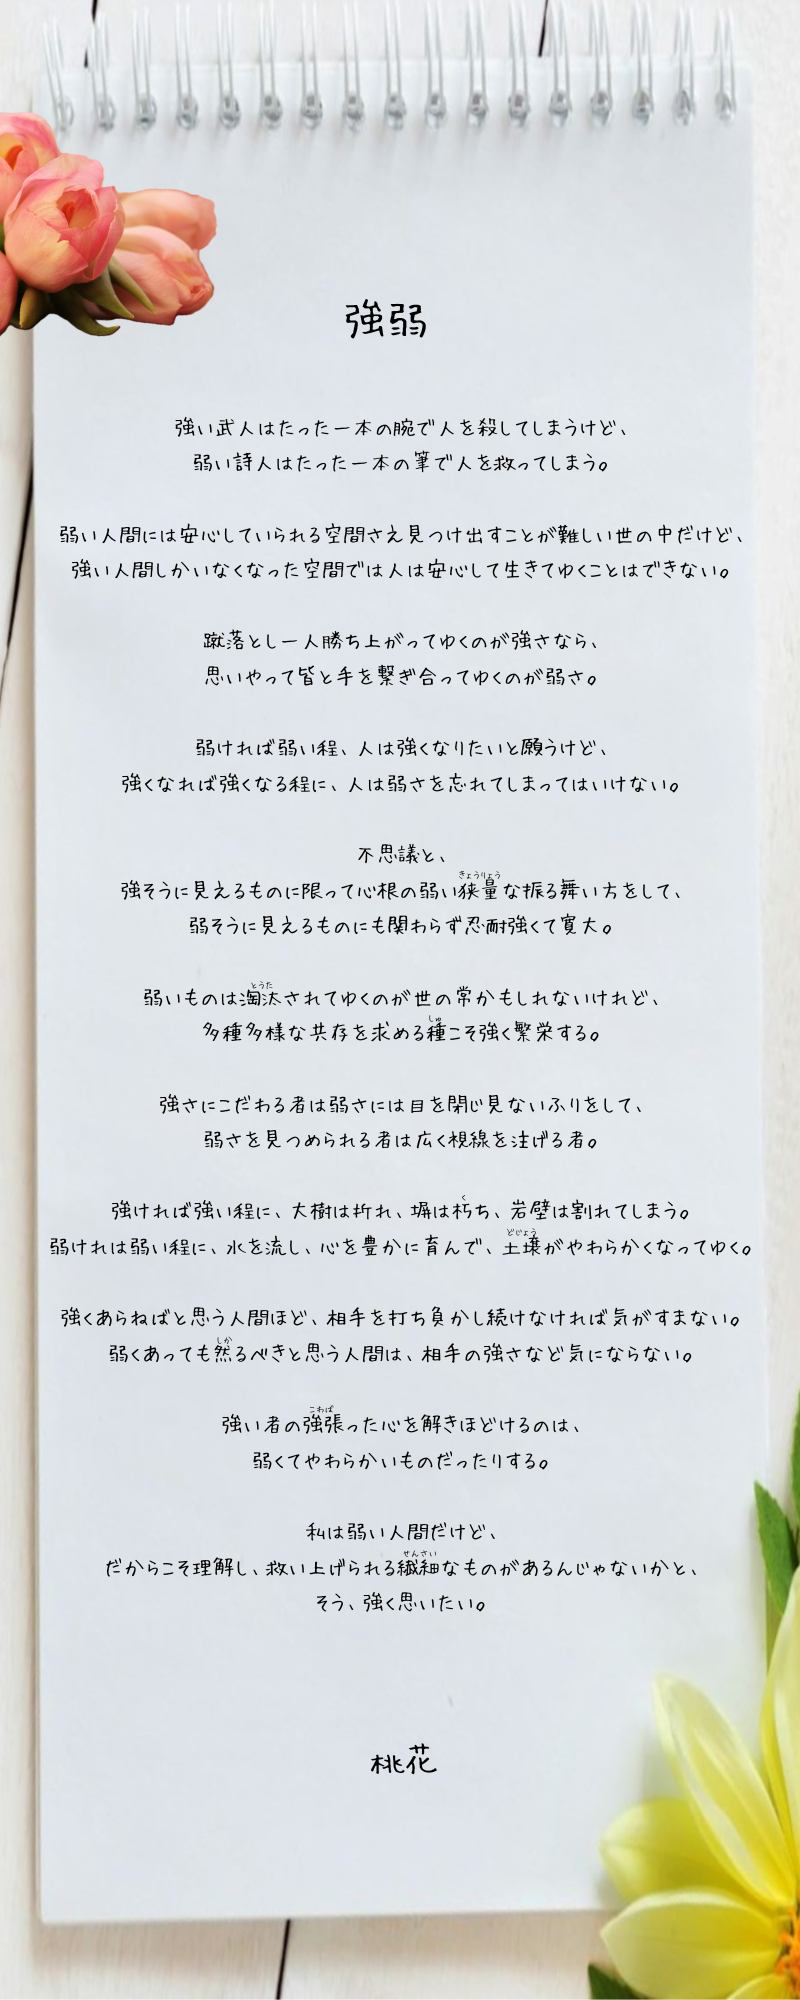 強弱
強い武人はたった一本の腕で人を殺してしまうけど、
弱い詩人はたった一本の筆で人を救ってしまう。
弱い人間には安心していられる空間さえ見つけ出すことが難しい世の中だけど、
強い人間しかいなくなった空間では人は安心して生きてゆくことはできない。
蹴落とし一人勝ち上がってゆくのが強さなら、
思いやって皆と手を繋ぎ合ってゆくのが弱さ。
弱ければ弱い程、人は強くなりたいと願うけど、
強くなれば強くなる程に、人は弱さを忘れてしまってはいけない。
不思議と、
きょうりょう
強そうに見えるものに限って心根の弱い狭量な振る舞い方をして、
弱そうに見えるものにも関わらず忍耐強くて寛大。
とうた
弱いものは淘汰されてゆくのが世の常かもしれないけれど、
しゅ
多種多様な共存を求める種こそ強く繁栄する。
強さにこだわる者は弱さには目を閉じ見ないふりをして、
弱さを見つめられる者は広く視線を注げる者。
く
強ければ強い程に、大樹は折れ、塀は朽ち、岩壁は割れてしまう。
どじょう
弱ければ弱い程に、水を流し、心を豊かに育んで、土壌がやわらかくなってゆく。
強くあらねばと思う人間ほど、相手を打ち負かし続けなければ気がすまない。
しか
弱くあっても然るべきと思う人間は、相手の強さなど気にならない。
こわば
強い者の強張った心を解きほどけるのは、
弱くてやわらかいものだったりする。
私は弱い人間だけど、
せんさい
だからこそ理解し、救い上げられる繊細なものがあるんじゃないかと、
そう、強く思いたい。
桃花